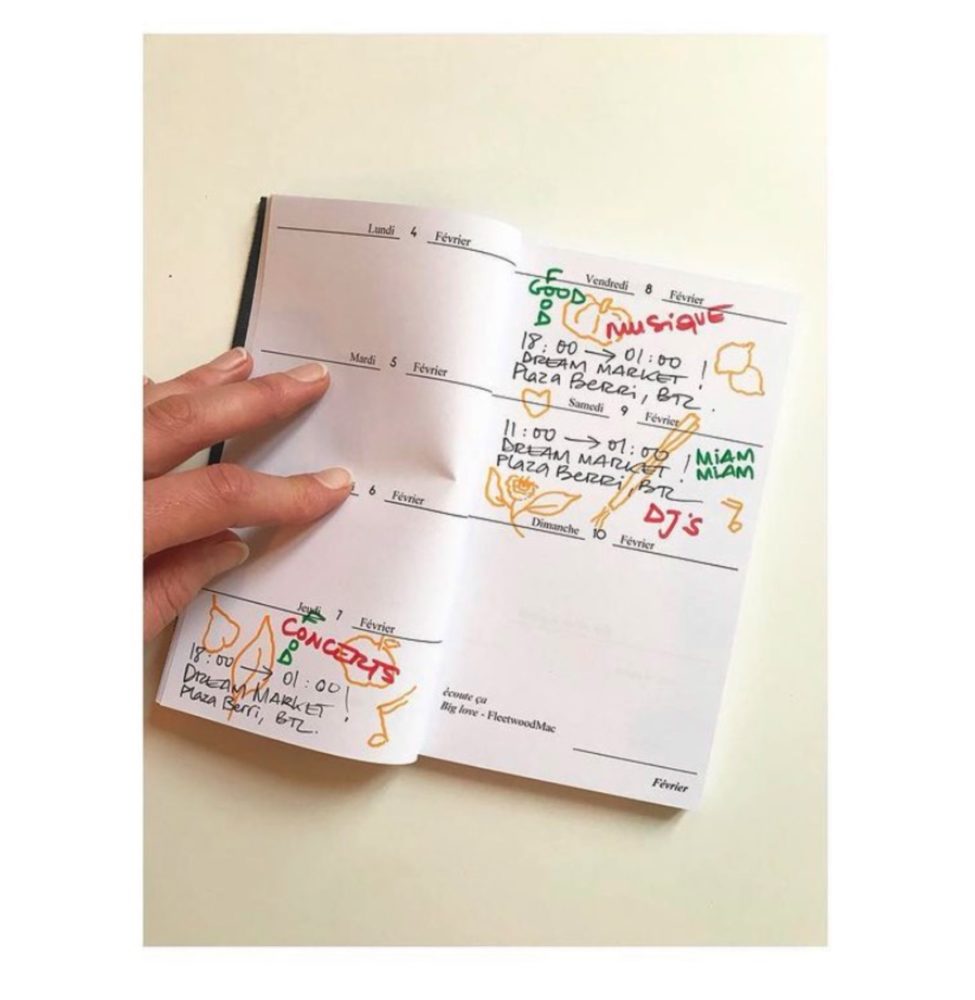 Lundi 4 Février
Mardi 5 Février
6 Février
Jeudi 7 Février
FOOD
CONCERTS
18:00 → 01:00 !
DREAM MARKET
Plaza Berri, BTZ.
Vendredi 8 Février
FOOD
GOOD
MUSIQUE
18:00 → 01:00 !
DREAM MARKET
Plaza Berri, BTZ.
Samedi 9 Février
11:00 → 01:00 !
DREAM MARKET
Plaza Berri, BTZ
MIAM
MIAM
DJ's
Dimanche 10 Février
écoute ça
Big love - FleetwoodMac
Février